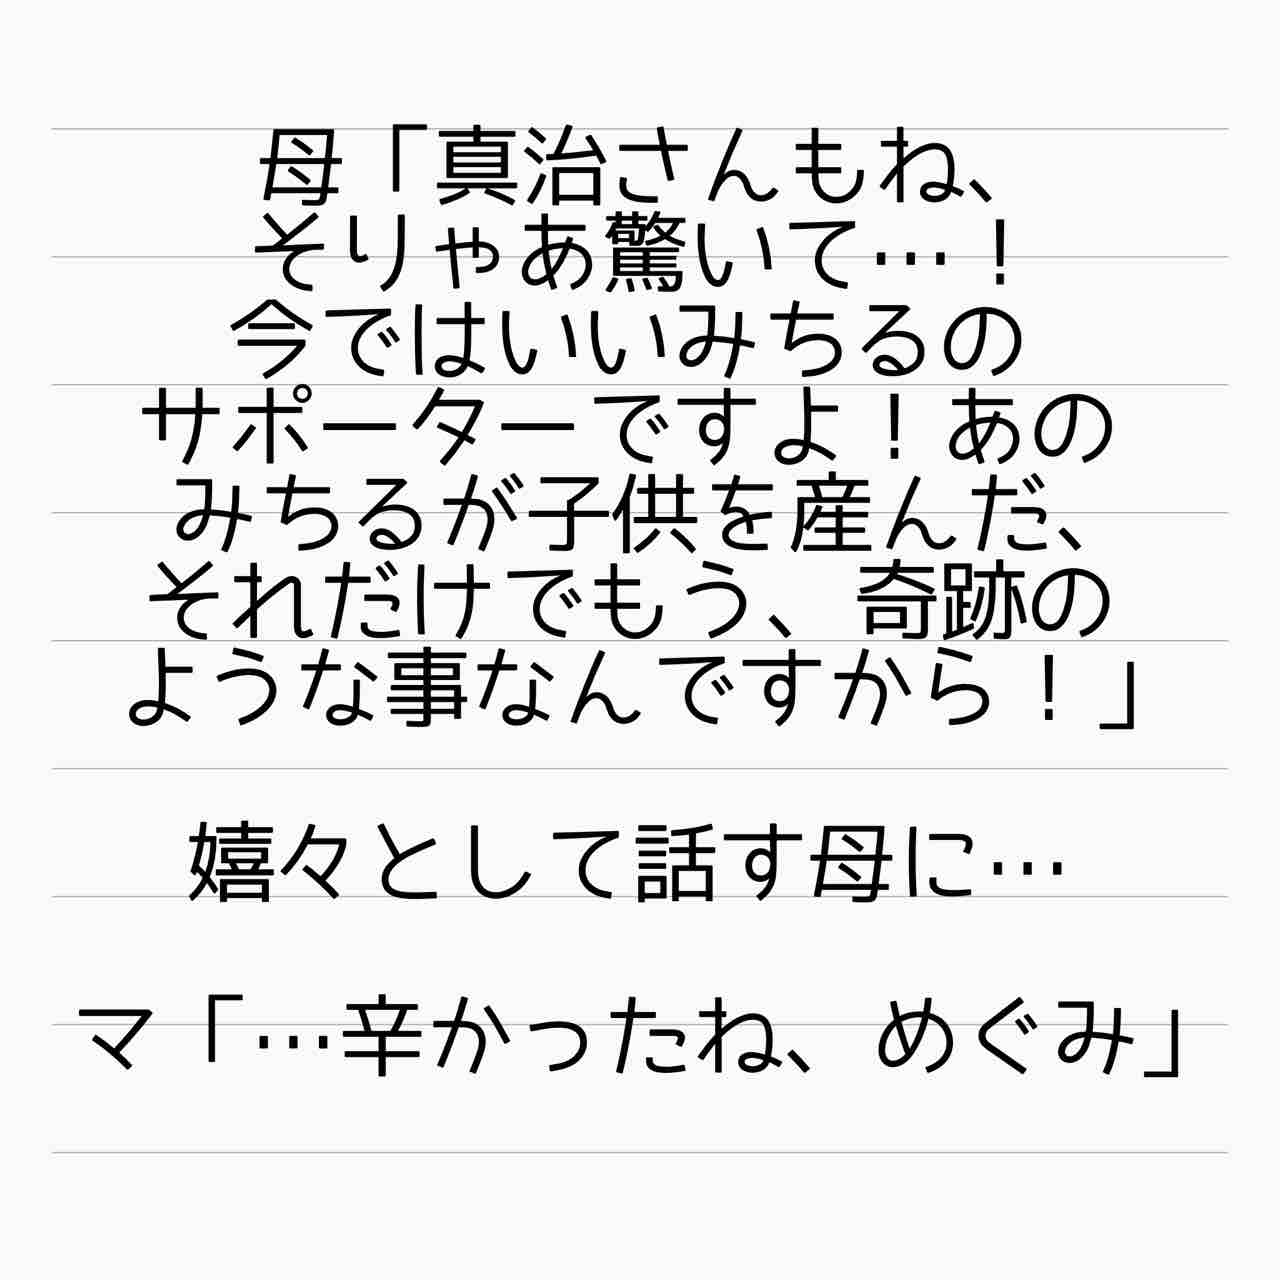 母「真治さんもね、
そりゃあ驚いて…！
今ではいいみちるの
サポーターですよ！あの
みちるが子供を産んだ、
それだけでもう、奇跡の
ような事なんですから！」
嬉々として話す母に…
マ「…辛かったね、めぐみ」